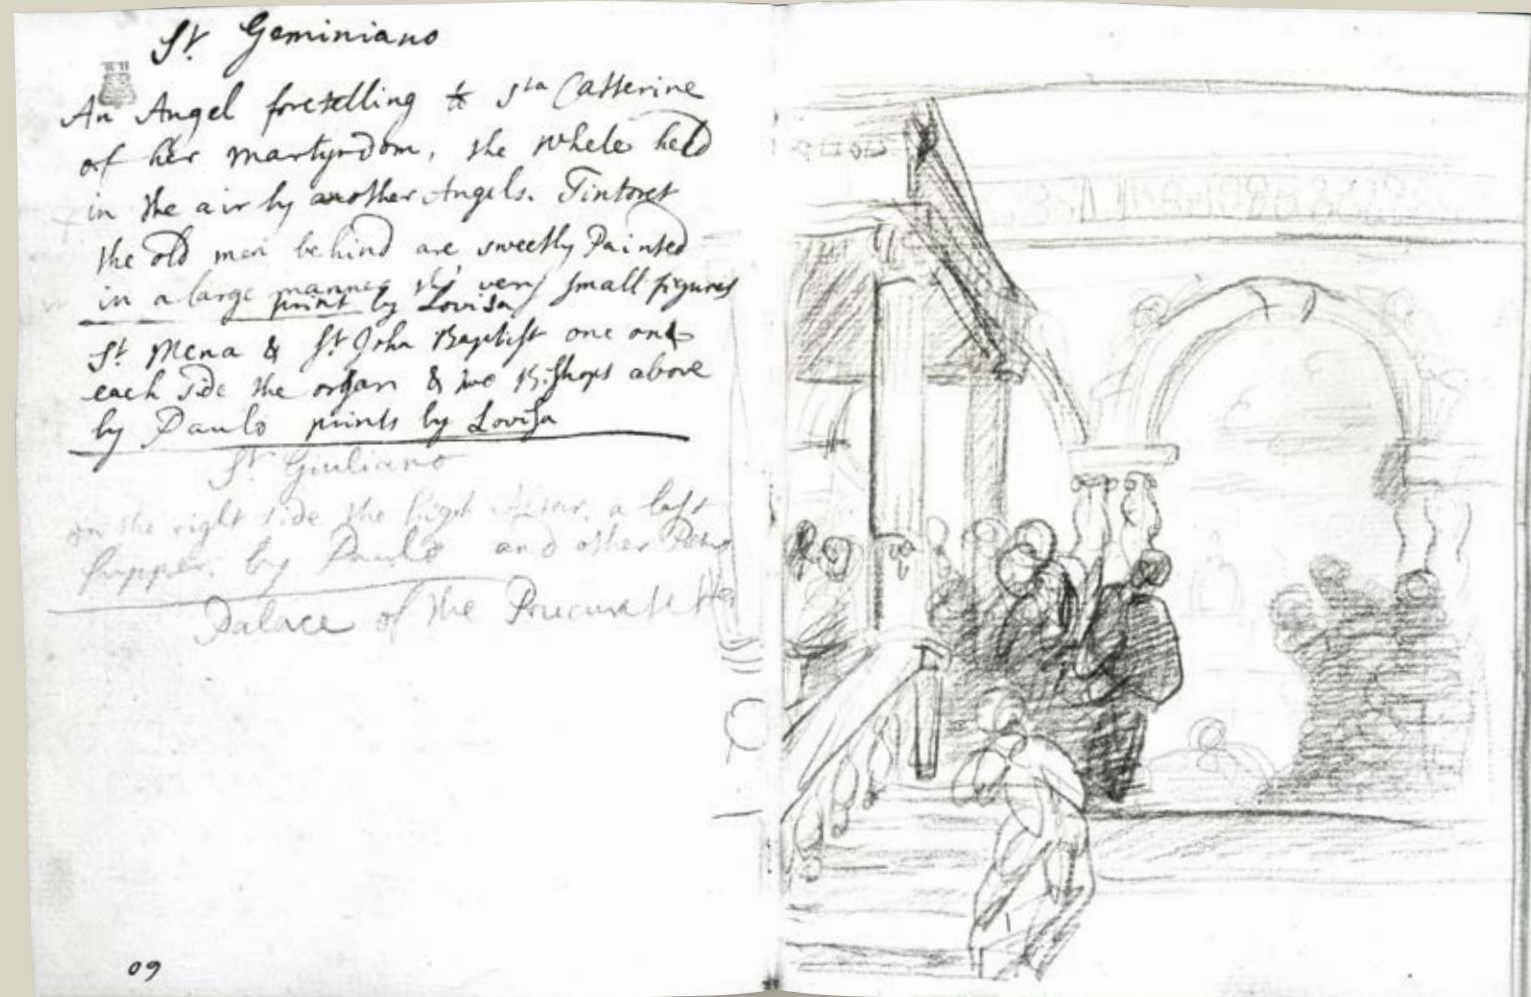 St Geminiano
An Angel foretelling to Sta Catterine
of her martyrdom, the whele held
in the air by another Angels. Tintoret
the old men behind are sweetly Painted
in a large manner tho' very small figures
print by Lovisa
St Mena & St John Baptist one on
each side the organ & two Bishops above
by Paulo prints by Lovisa
St Giuliano
on the right side the high Altar. a last
supper. by Paulo and other
Palace of the
09